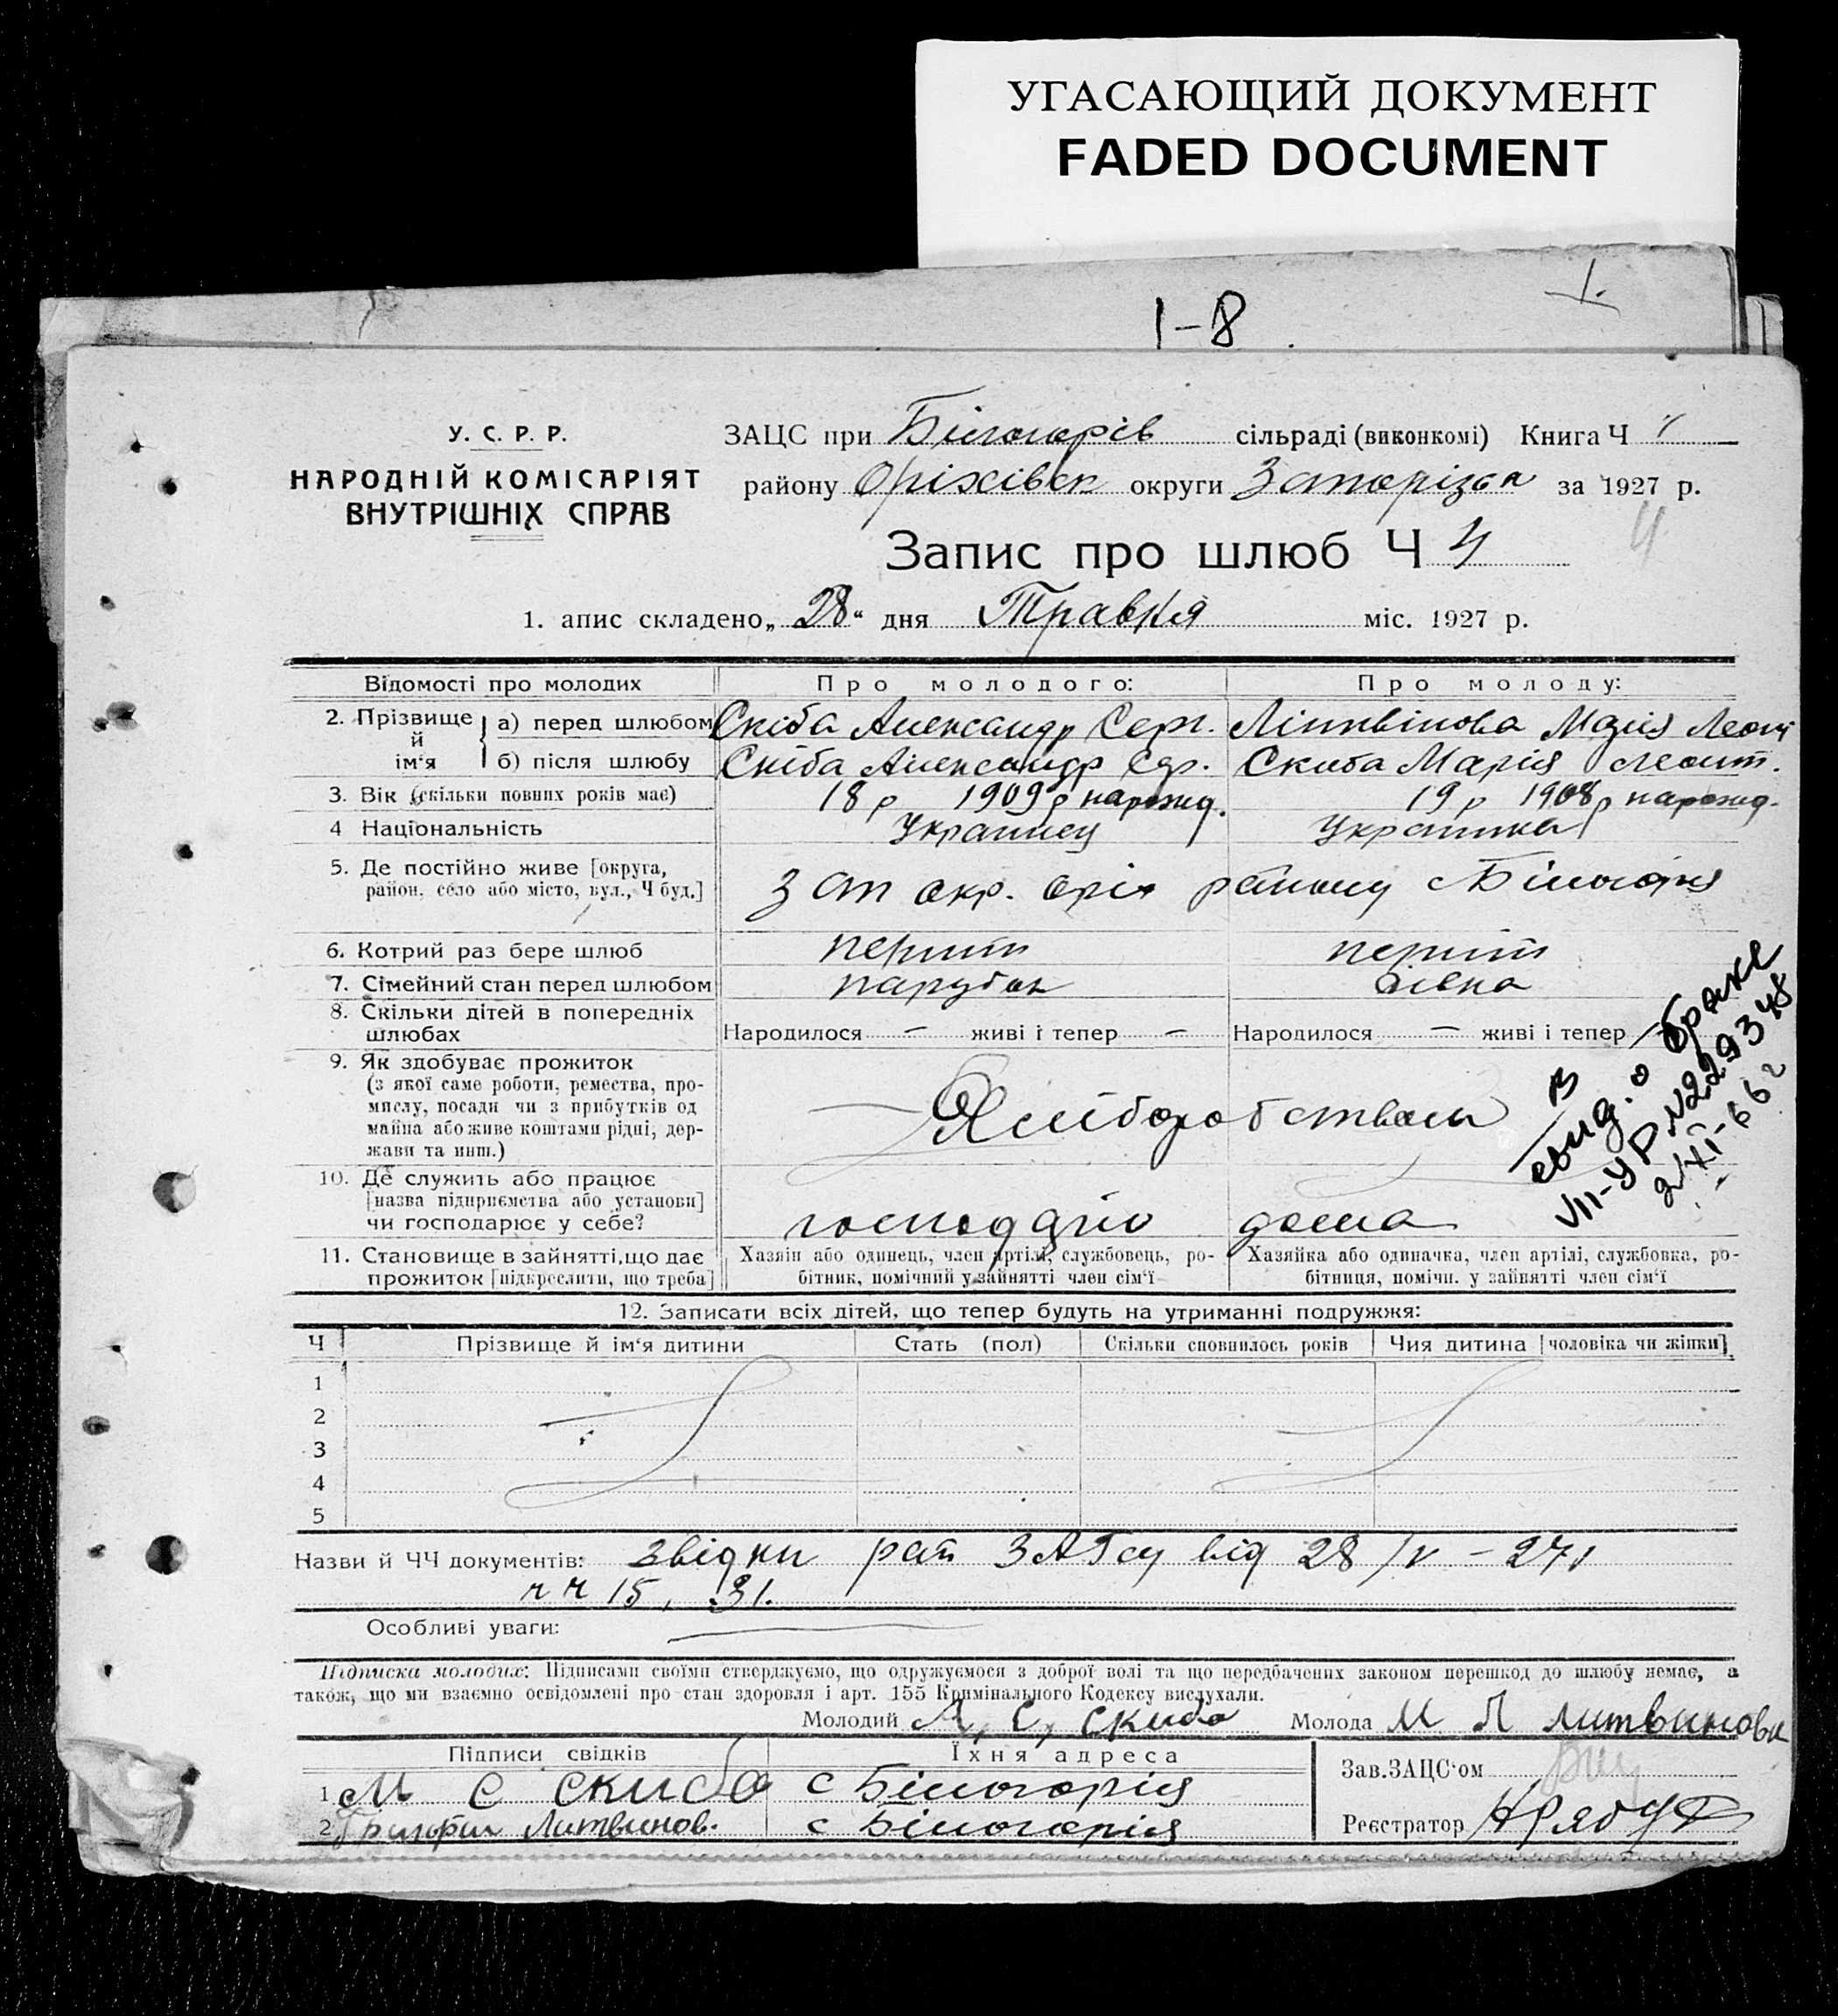 УГАСАЮЩИЙ ДОКУМЕНТ
FADED DOCUMENT
1.
1-8
У. С. Р. Р.
НАРОДНІЙ КОМІСАРІЯТ
ВНУТРІШНІХ СПРАВ
ЗАЦС при Білогорів сільраді (виконкомі) Книга Ч 1
району Оріхівськ округи Запорізьк за 1927 р.
Запис про шлюб Ч 4
4
1. апис складено „28“ дня Травня міс. 1927 р.
Відомості про молодих Про молодого: Про молоду:
2. Прізвище й ім‘я
а) перед шлюбом Скіба Александр Серг. Літвінова Марія Леонт
б) після шлюбу Скіба Александр Сер. Скиба Марія Леонт.
3. Вік (скільки повних років має) 18 р 1909 р нарожд. 19 р 1908 р нарожд.
4 Національність Украинец Украинка
5. Де постійно живе [округа,
район, село або місто, вул., Ч буд.] Зап окр. Оріх району с Білогорья
6. Котрий раз бере шлюб перший перший
7. Сімейний стан перед шлюбом парубок дівка
8. Скільки дітей в попередніх
шлюбах Народилося — живі і тепер — Народилося — живі і тепер —
9. Як здобуває прожиток
(з якої саме роботи, ремества, про-
мислу, посади чи з прибутків од
майна або живе коштами рідні, дер-
жави та инш.)
Хліборобством
В
свид. о браке
VII-УР №229348
2/XI-66 г
10. Де служить або працює
[назва підприємства або установи]
чи господарює у себе? господарю дома
11. Становище в зайнятті, що дає
прожиток [підкреслити, що треба]
Хазяін або одинець, член артілі, службовець, ро-
бітник, помічний у зайнятті член сім‘ї
Хазяйка або одиначка, член артілі, службовка, ро-
бітниця, помічн. у зайнятті член сім‘ї
12. Записати всіх дітей, що тепер будуть на утриманні подружжя:
Ч Прізвище й ім‘я дитини Стать (пол) Скільки сповнилось років Чия дитина [чоловіка чи жінки]
1
2
3
4
5
Назви й ЧЧ документів: звідки рай ЗАГсу від 28/V-27р
ч ч 15, 31.
Особливі уваги:
Підписка молодих: Підписами своїми стверджуємо, що одружуємося з доброї волі та що передбачених законом перешкод до шлюбу немає, а
також, що ми взаємно освідомлені про стан здоровля і арт. 155 Кримінального Кодексу вислухали.
Молодий А, С, Скиба Молода М Л Литвинова
Підписи свідків Їхня адреса
1. М С Скиба с Білогорія
2. Григорій Литвинов. с Білогорія
Зав.ЗАЦС‘ом
Реєстратор